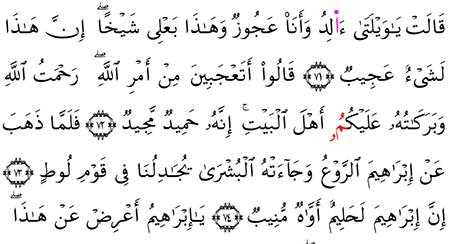 قَالَتْ يَٰوَيْلَتَىٰ ءَا۬لِدُ وَأَنَا۠ عَجُوزٌ وَهَٰذَا بَعْلِى شَيْخًا ۖ إِنَّ هَٰذَا
لَشَىْءٌ عَجِيبٌ ﴿٧١﴾ قَالُوا۟ أَتَعْجَبِينَ مِنْ أَمْرِ ٱللَّهِ ۖ رَحْمَتُ ٱللَّهِ
وَبَرَكَٰتُهُۥ عَلَيْكُمُۥ أَهْلَ ٱلْبَيْتِ ۚ إِنَّهُۥ حَمِيدٌ مَّجِيدٌ ﴿٧٢﴾ فَلَمَّا ذَهَبَ
عَنْ إِبْرَٰهِيمَ ٱلرَّوْعُ وَجَآءَتْهُ ٱلْبُشْرَىٰ يُجَٰدِلُنَا فِى قَوْمِ لُوطٍ ﴿٧٣﴾
إِنَّ إِبْرَٰهِيمَ لَحَلِيمٌ أَوَّٰهٌ مُّنِيبٌ ﴿٧٤﴾ يَٰإِبْرَٰهِيمُ أَعْرِضْ عَنْ هَٰذَا ۖ